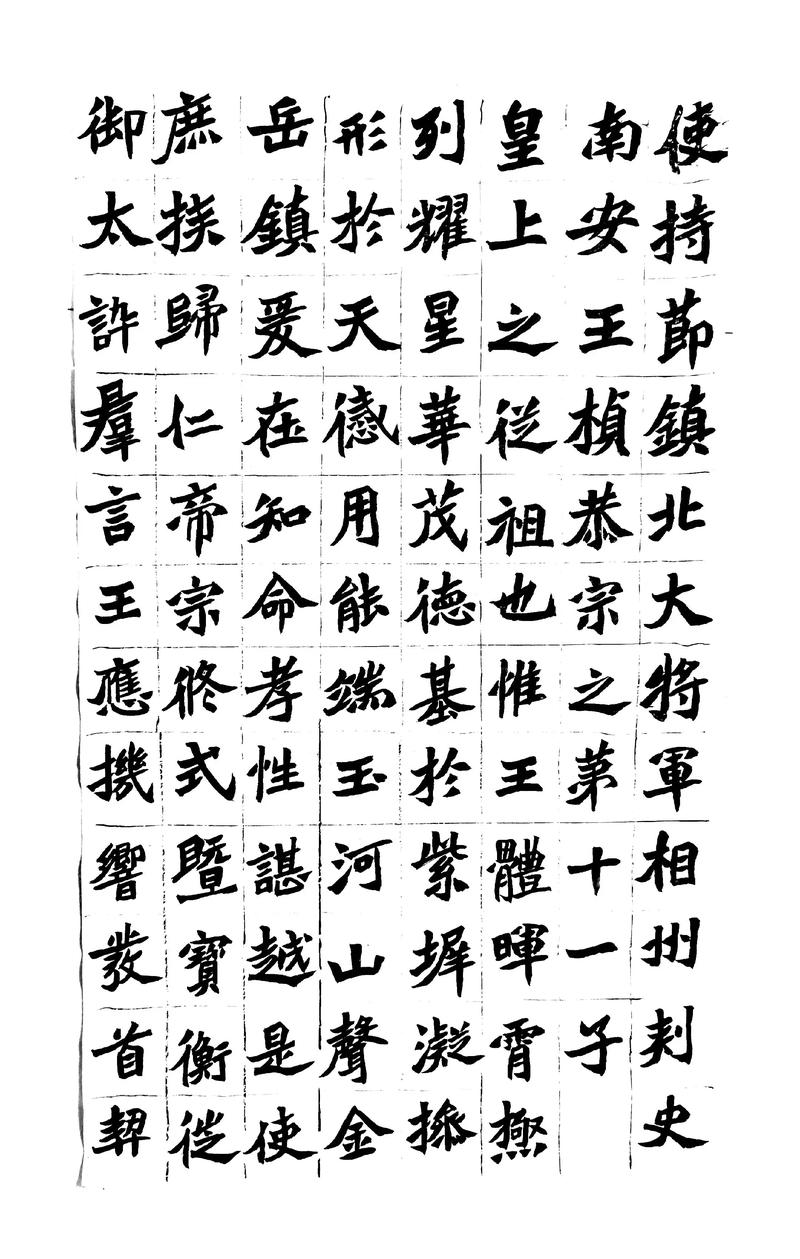 使持節鎮北大將軍相州刺史
南安王楨恭宗之第十一子
皇上之從祖也惟王體暉霄極
列耀星華茂德基於紫墀凝操
形於天感用能端玉河山聲金
岳鎮爰在知命孝性諶越是使
庶族歸仁帝宗攸式暨寶衡徙
御太訊羣言王應機響發首契